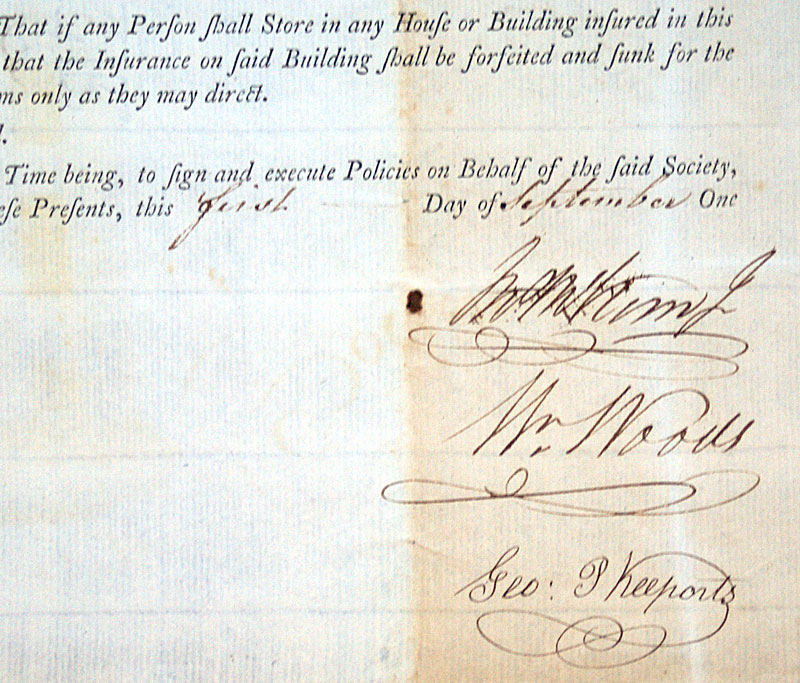 That if any Perſon ſhall Store in any Houſe or Building inſured in this
that the Inſurance on ſaid Building ſhall be forfeited and ſunk for the
ms only as they may direct.
l.
Time being, to ſign and execute Policies on Behalf of the ſaid Society,
eſe Preſents, this first Day of September One
Wm. Woods
Geo: P Keeports